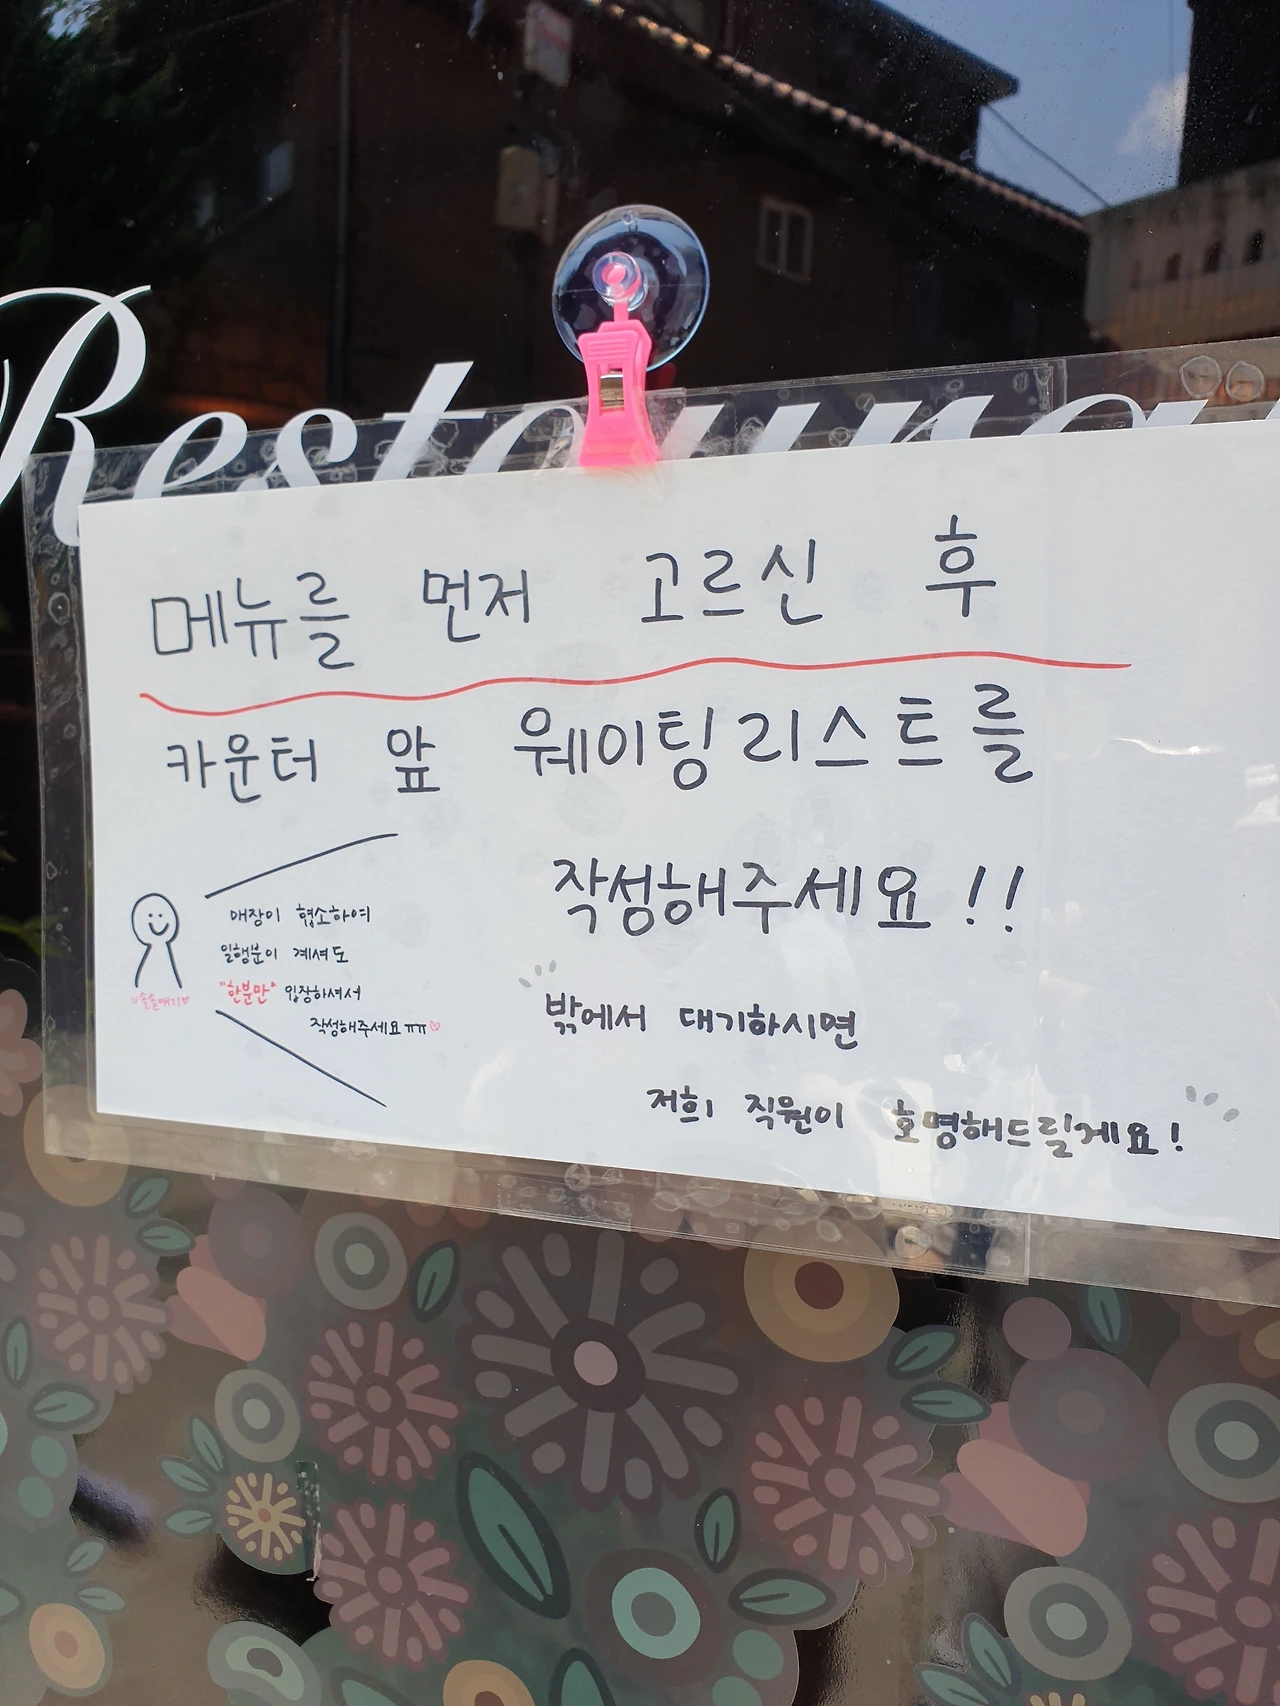 Restaura
메뉴를 먼저 고르신 후
카운터 앞 웨이팅리스트를
작성해주세요!!
매장이 협소하여
일행분이 계셔도
"한분만" 입장하셔서
작성해주세요ㅠㅠ♡
♡솔솔매기♡
밖에서 대기하시면
저희 직원이 호명해드릴게요!